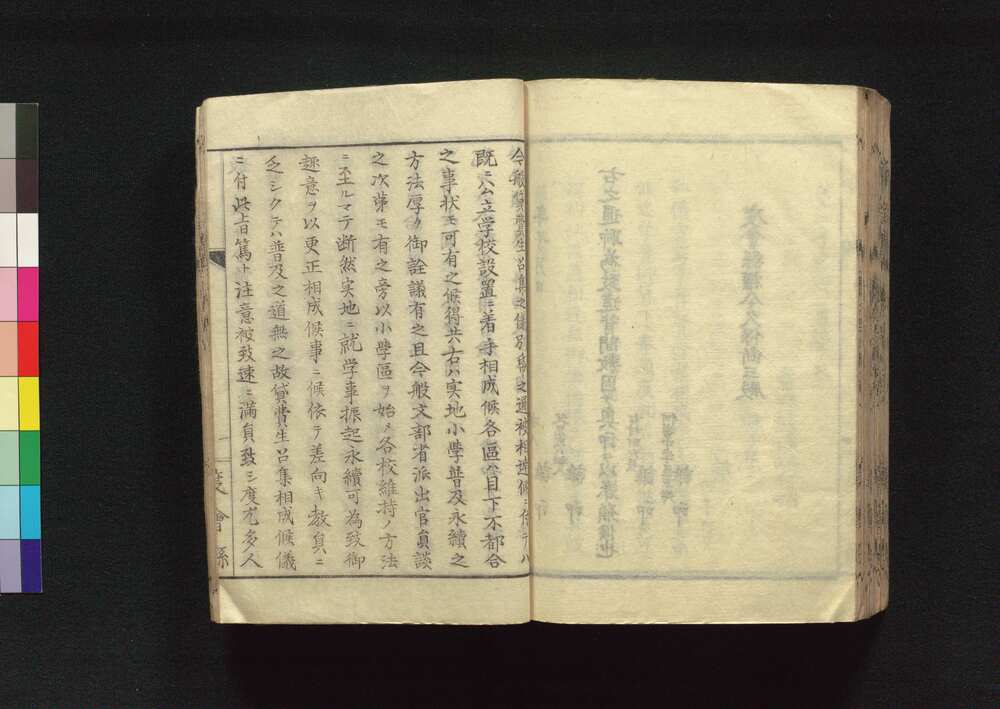 今般貸費生召集之儀別紙之通被相達候ニ付テハ
既ニ公立学校設置ニ着手相成候各區會目下不都合
之事状モ可有之候得共右ハ実地小學普及永續之
方法厚ク御詮議有之且今般文部省派出官員談
之次第モ有之旁以小學區ヲ始メ各校維持ノ方法
ニ至ルマテ断然実地ニ就学事振起永續可為致御
趣意ヲ以更正相成候事ニ候依テ差向キ教員ニ
乏シクテハ普及之道無之故貸費生召集相成候儀
ニ付此旨篤ト注意被致速ニ満員致シ度尤多人
度會縣